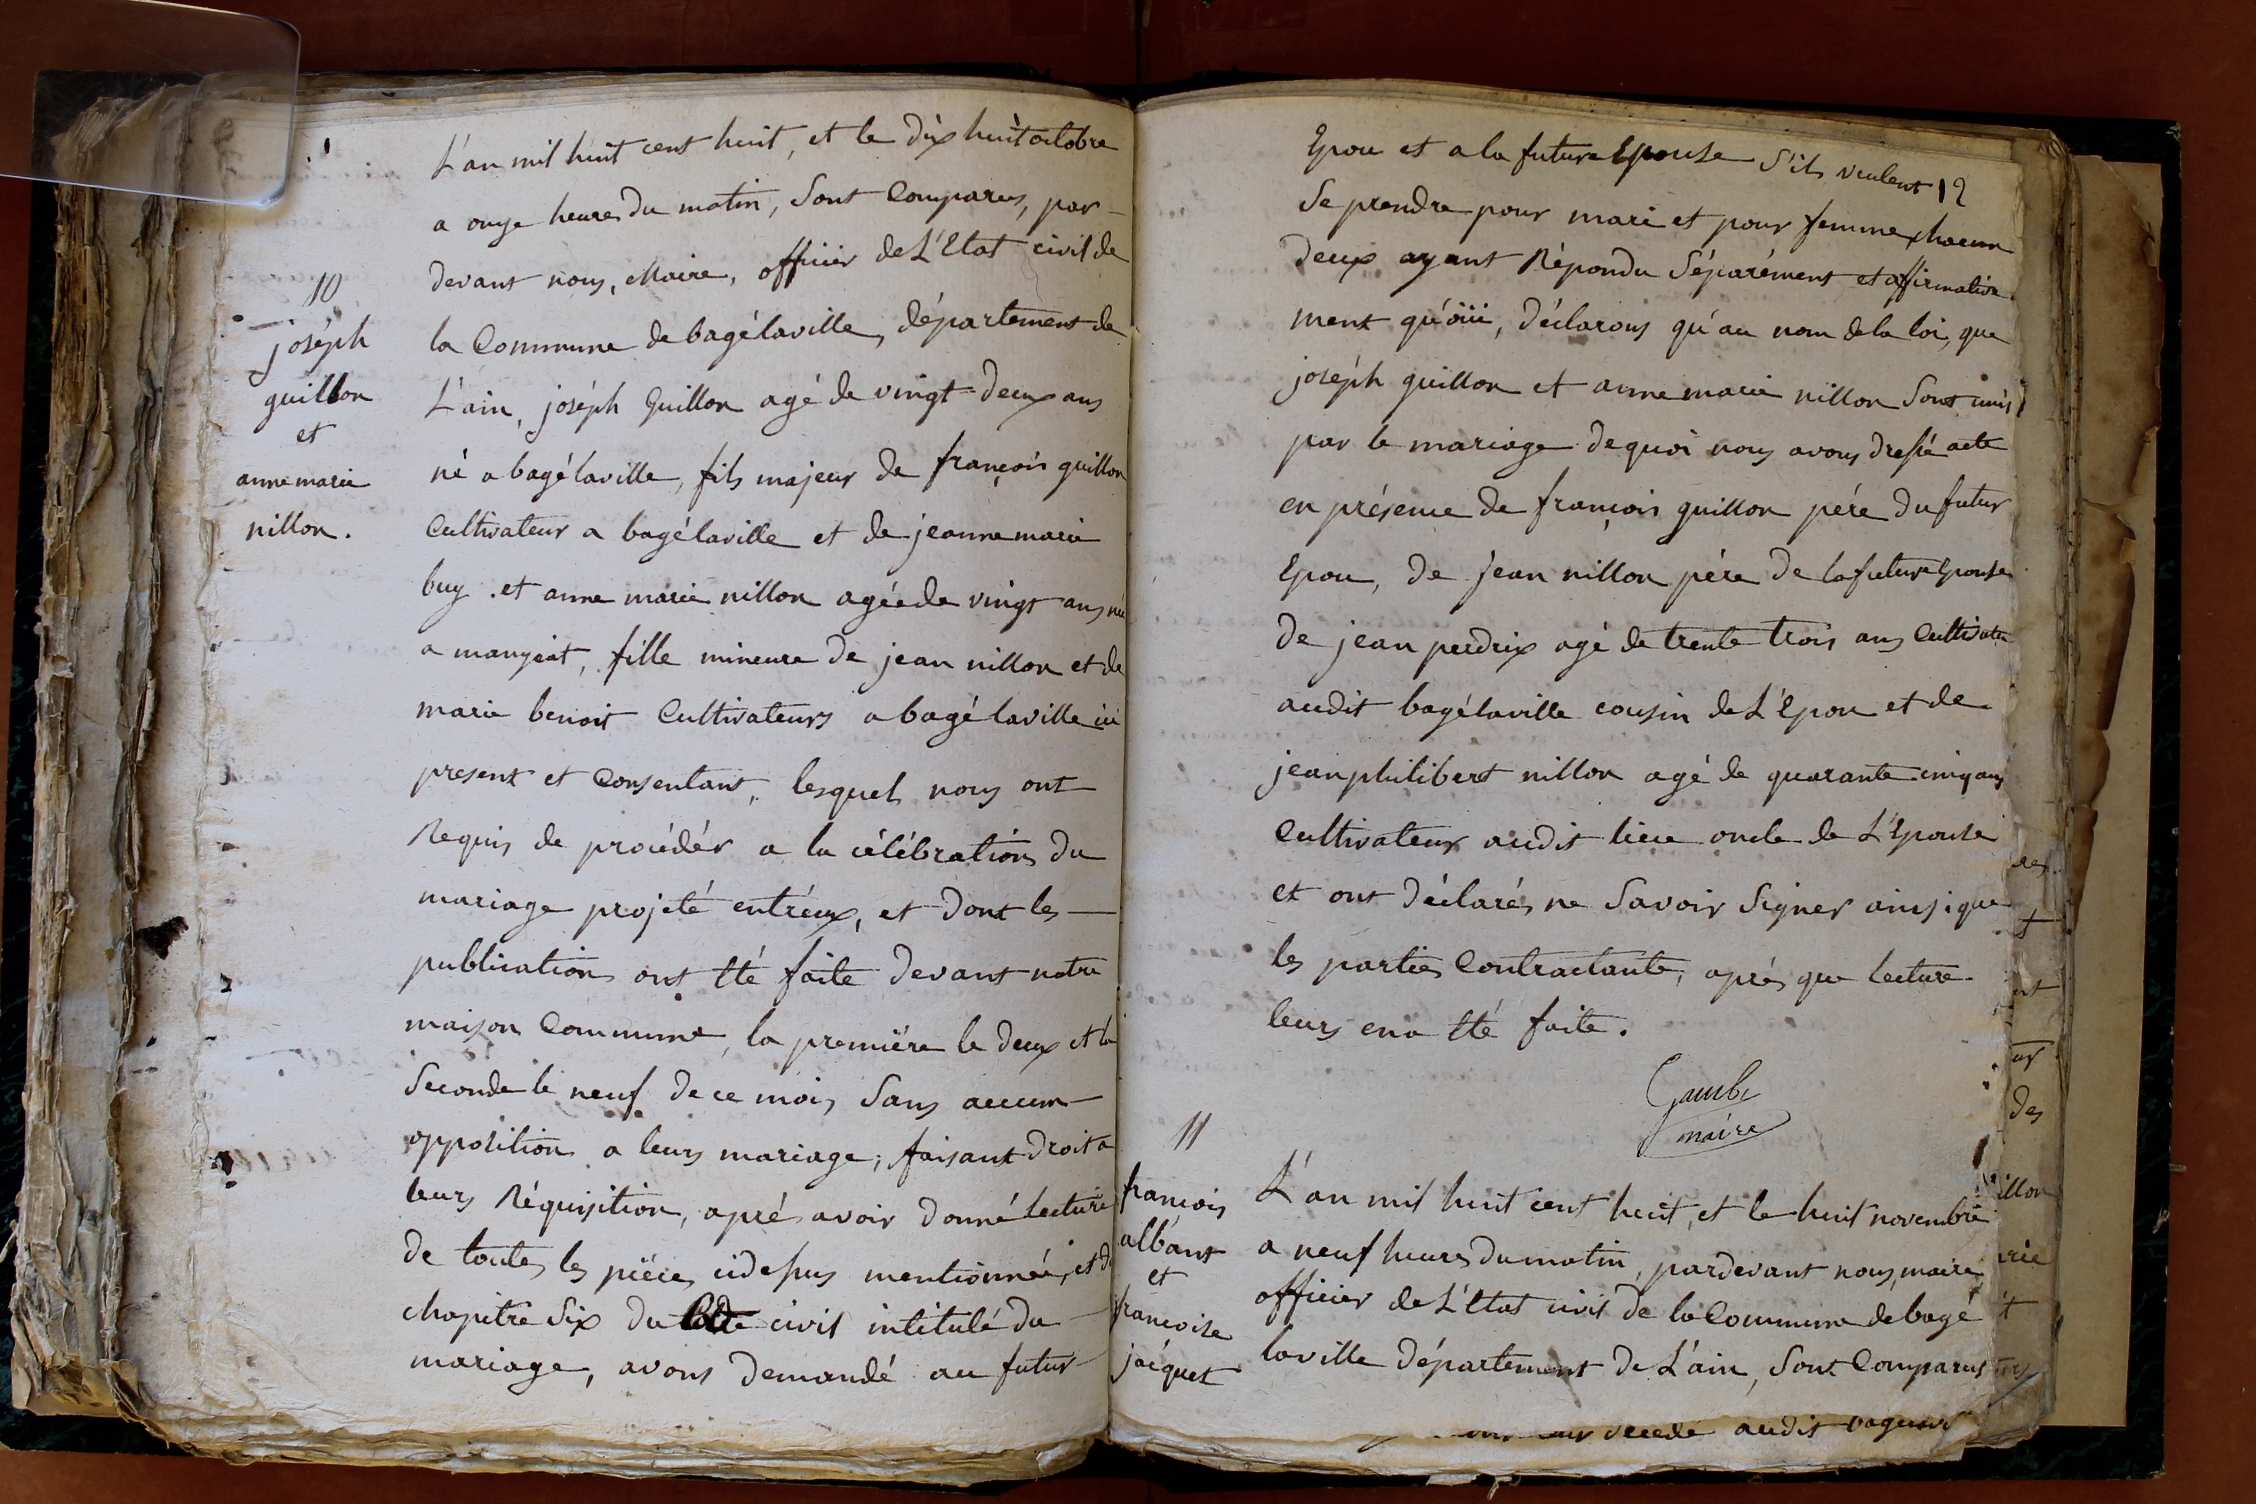 10
joséph
guillon
et
anne marie
nillon.
L'an mil huit cent huit, et le dix huit octobre
a onze heures du matin, Sont Comparus, par-
devant nous, Maire, officier de L'Etat civil de
la Commune de bagélaville, département de
L'ain, joséph Guillon agé de vingt-deux ans
né a bagélaville, fils majeur de françois guillon
Cultivateur a bagélaville et de jeanne marie
buy. et anne marie nillon agée de vingt ans née
a manziat, fille mineure de jean nillon et de
marie benoit Cultivateurs a bagé laville ici
present et Consentant, lesquels nous ont
Requis de procédér a la célébration du
mariage projeté entréux, et dont les
publications ont été faite devant notre
maison Commune, la premiére le deux et la
Seconde le neuf de ce mois, Sans aucun
opposition a leurs mariage; faisant droit a
leurs Réquisition, aprés avoir donné lecture
de toutes les piéces cidessus mentionnée, et du
chapitre Six du Code civil intitulé du
mariage, avons demandé au futur
Epou et a la future Epouse S'ils veulent 12
Se prendre pour mari et pour femme, chacun
deux ayant Répondu Séparément et affirmative
ment qu'oüi, déclarons qu'au nom de la loi, que
joséph guillon et anne marie nillon Sont unis
par le mariage de quoi nous avons dressé acte
en présence de françois guillon pére du futur
Epou, de jean nillon pére de la future Epouse
de jean perdrix agé de trente trois ans Cultivateur
audit bagélaville cousin de L'Epou et de
jean philibert nillon agé de quarante cinq ans
Cultivateur audit lieu oncle de L'Epouse
et ont déclarés ne Savoir Signer ainsi que
les parties Contractante, aprés que lecture
leurs en a été faite.
maire
11
françois
albant
et
françoise
jacquet
L'an mil huit cent huit, et le huit novembre
a neuf heures du matin, pardevant nous, maire,
officier de L'Etat civil de la Commune de bagé
laville département de L'ain, Sont Comparus
décédé audit
des
illon